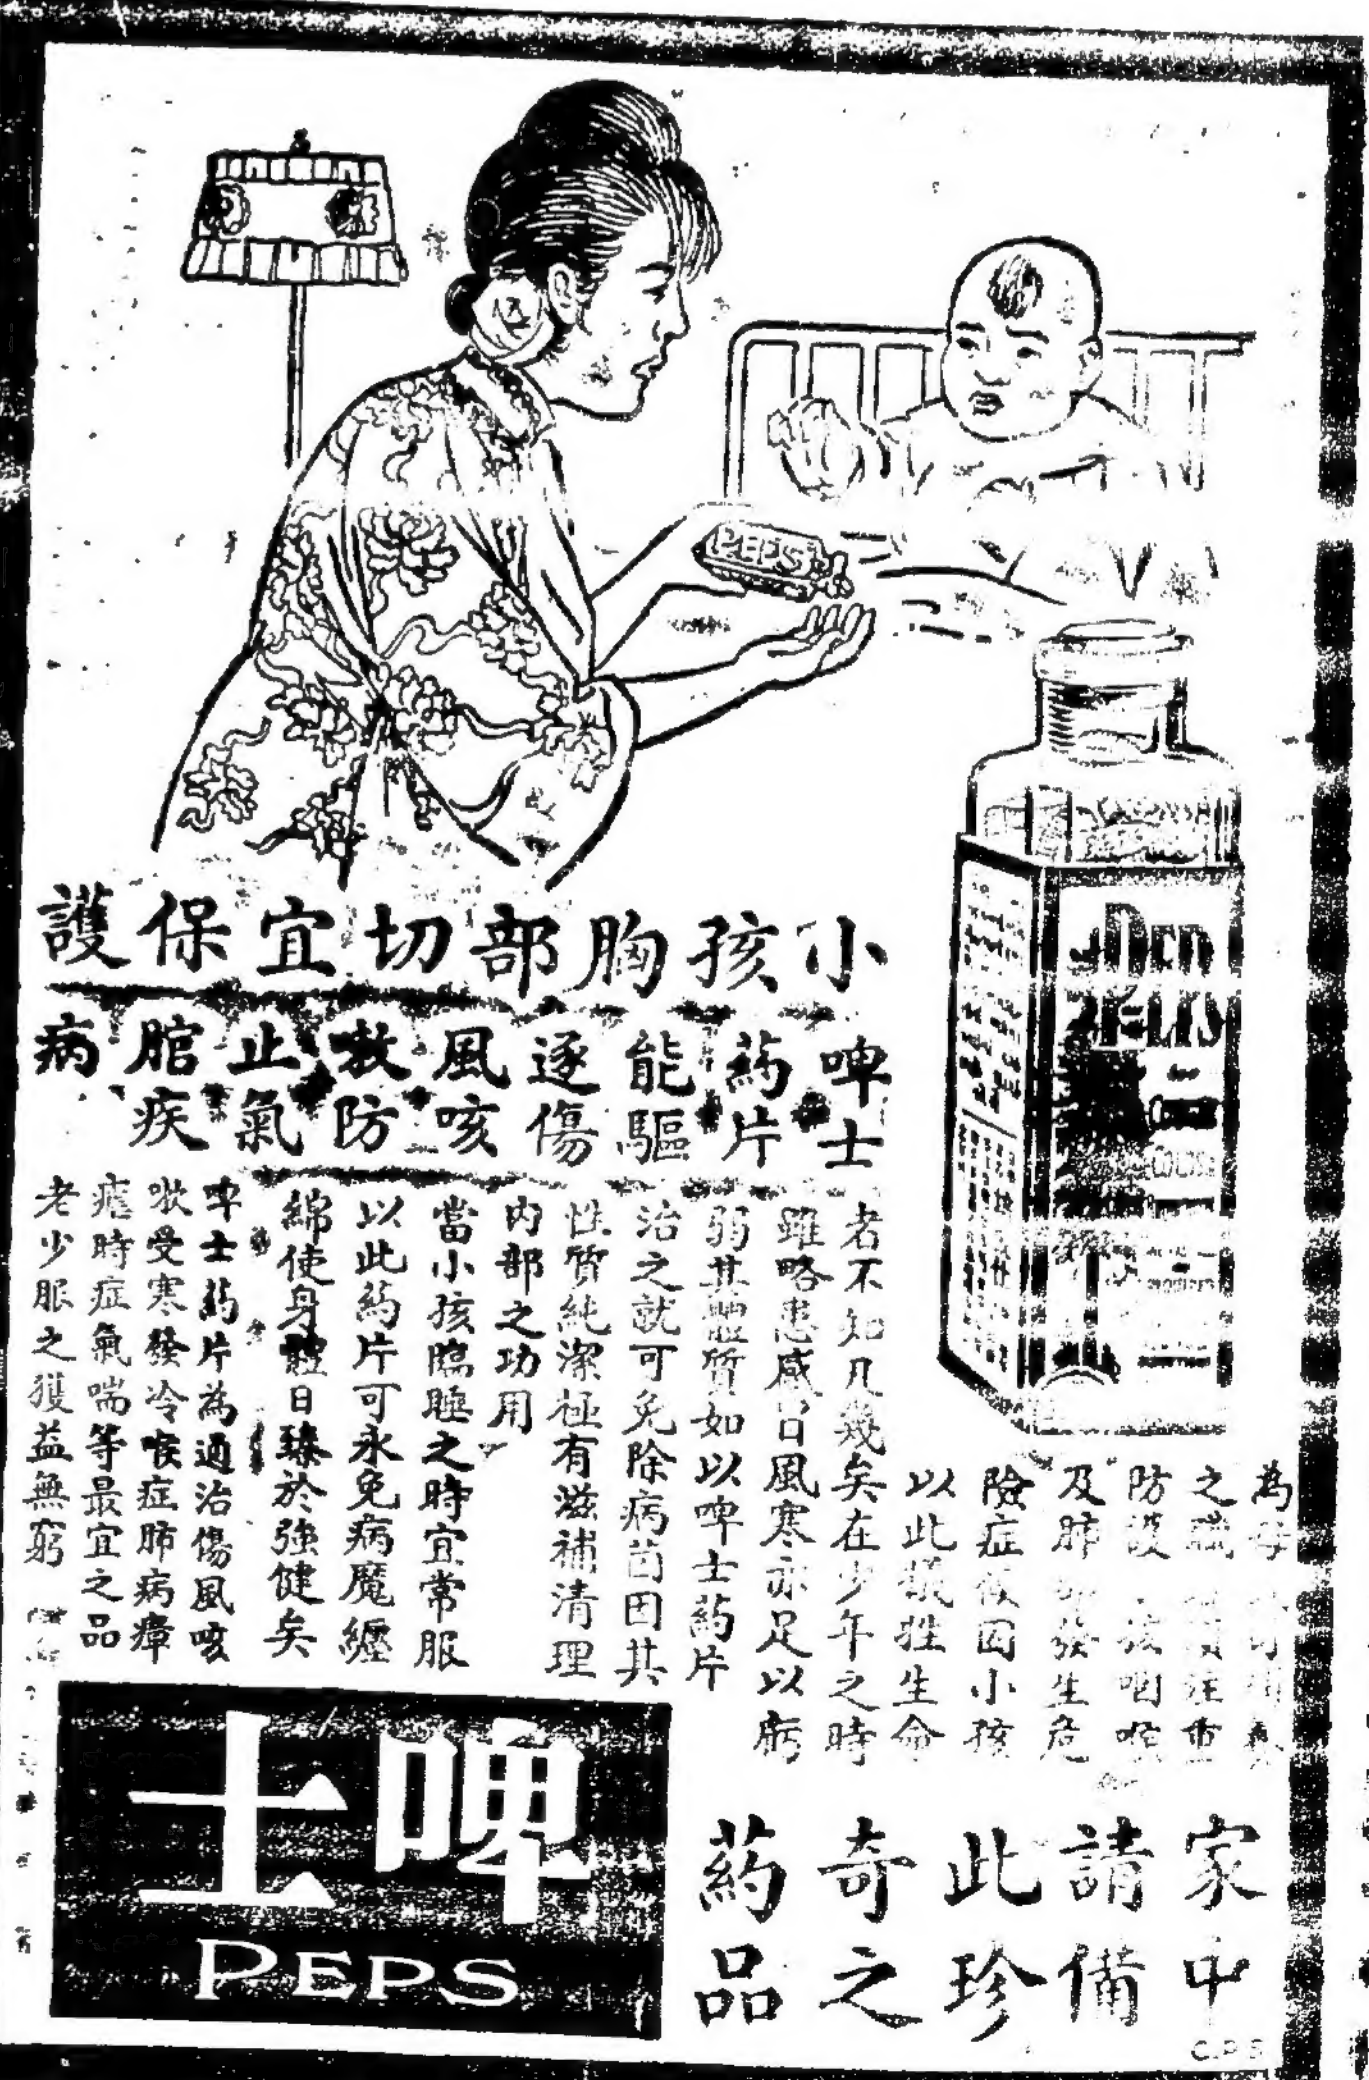 PEPS
小孩胸部切宜保護
啤士
藥片
能驅
逐傷
風咳
救防
止氣
腤疾
病
PEPS
為母
之職 注重
防護 孩咽喉
及肺 發生危
險症 因小孩
以此犧牲生命
者不知凡幾矣在少年之時
雖略患感冒風寒亦足以虧
弱其體質如以啤士葯片
治之就可免除病菌因其
性質純潔極有滋補清理
內部之功用
當小孩臨睡之時宜常服
以此葯片可永免病魔纏
綿使身體日臻於強健矣
啤士葯片為通治傷風咳
嗽受寒發冷喉症肺病瘴
瘧時症氣喘等最宜之品
老少服之獲益無窮
家中
請備
此珍
奇之
葯品
啤士
PEPS
C.P.5